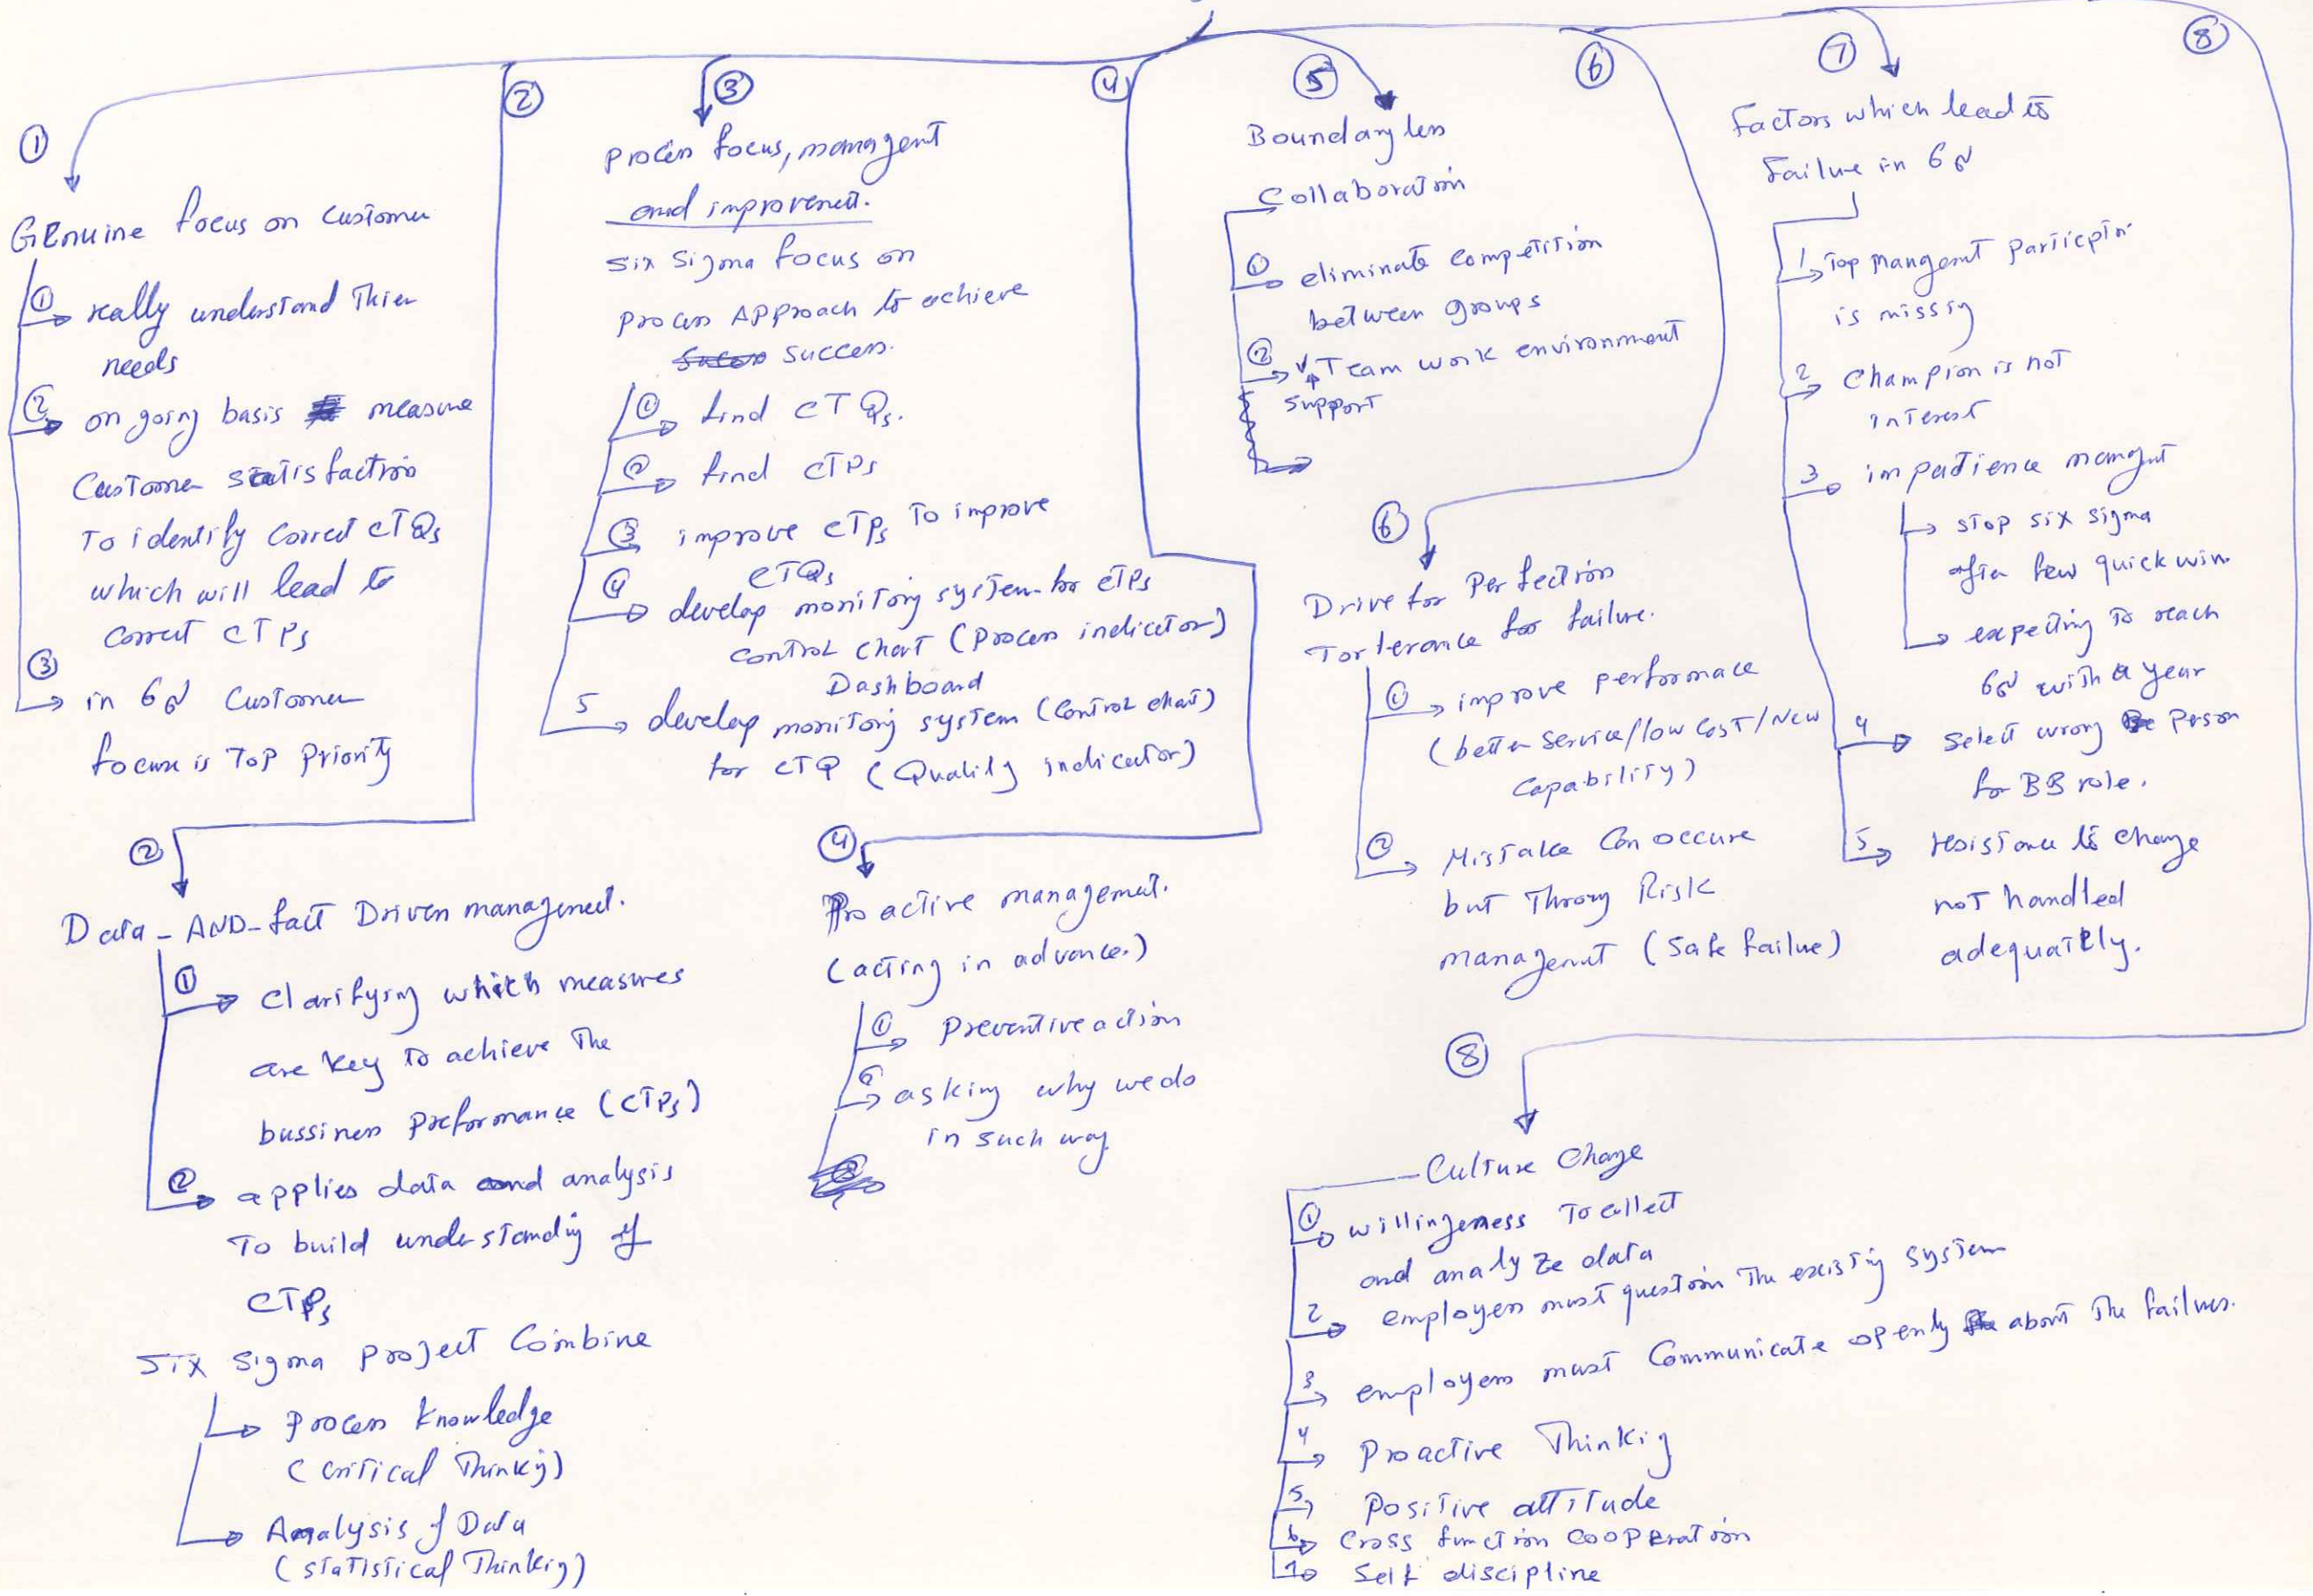 ①
GEnuine focus on customer
① really understand Thier
needs
② on going basis measure
Customer satisfaction
To identify correct CTQs
which will lead to
correct CTPs
③ in 6σ Customer
focus is Top Priority
②
②
Data-AND-fact Driven management.
① Clarifying which measures
are key to achieve The
bussiness Performance (CTPs)
② applies data and analysis
To build understanding of
CTPs
Six Sigma Project Combine
Process Knowledge
(Critical Thinking)
Analysis of Data
(Statistical Thinking)
③
Process focus, managent
and improvement.
Six Sigma focus on
Process Approach to achieve
Success.
① find CTQs.
② find CTPs
③ improve CTPs To improve
CTQs
④ develop monitory system for CTPs
Control chart (Process indicator)
Dashboard
5 develop monitory system (Control chart)
for CTQ (Quality indicator)
④
④
Pro active management.
(acting in advance.)
① Preventive action
② asking why we do
in such way
⑤
Boundaryless
Collaboration
① eliminate competition
between groups
② Team work environment
Support
⑥
⑥
Drive for Perfection
Torlerance for failure.
① improve performace
(better Service/low Cost/New
Capability)
② Mistake Can occure
but Throug Risk
management (Safe failure)
⑦
Factors which lead to
Failure in 6σ
1 Top Mangemt Particiption
is missig
2 Champion is not
interest
3 impatience mangmt
stop six sigma
after few quick win.
expecting to reach
6σ with a year
4 Select wrong Person
for BB role.
5 resistance to change
not handled
adequatly.
⑧
⑧
Culture Change
① willingeness To collect
and analyze data
2 employees must question The existing system
3 employees must Communicate openly about The failures.
4 Proactive Thinkig
5 Positive attitude
6 Cross function cooperation
7 Self discipline